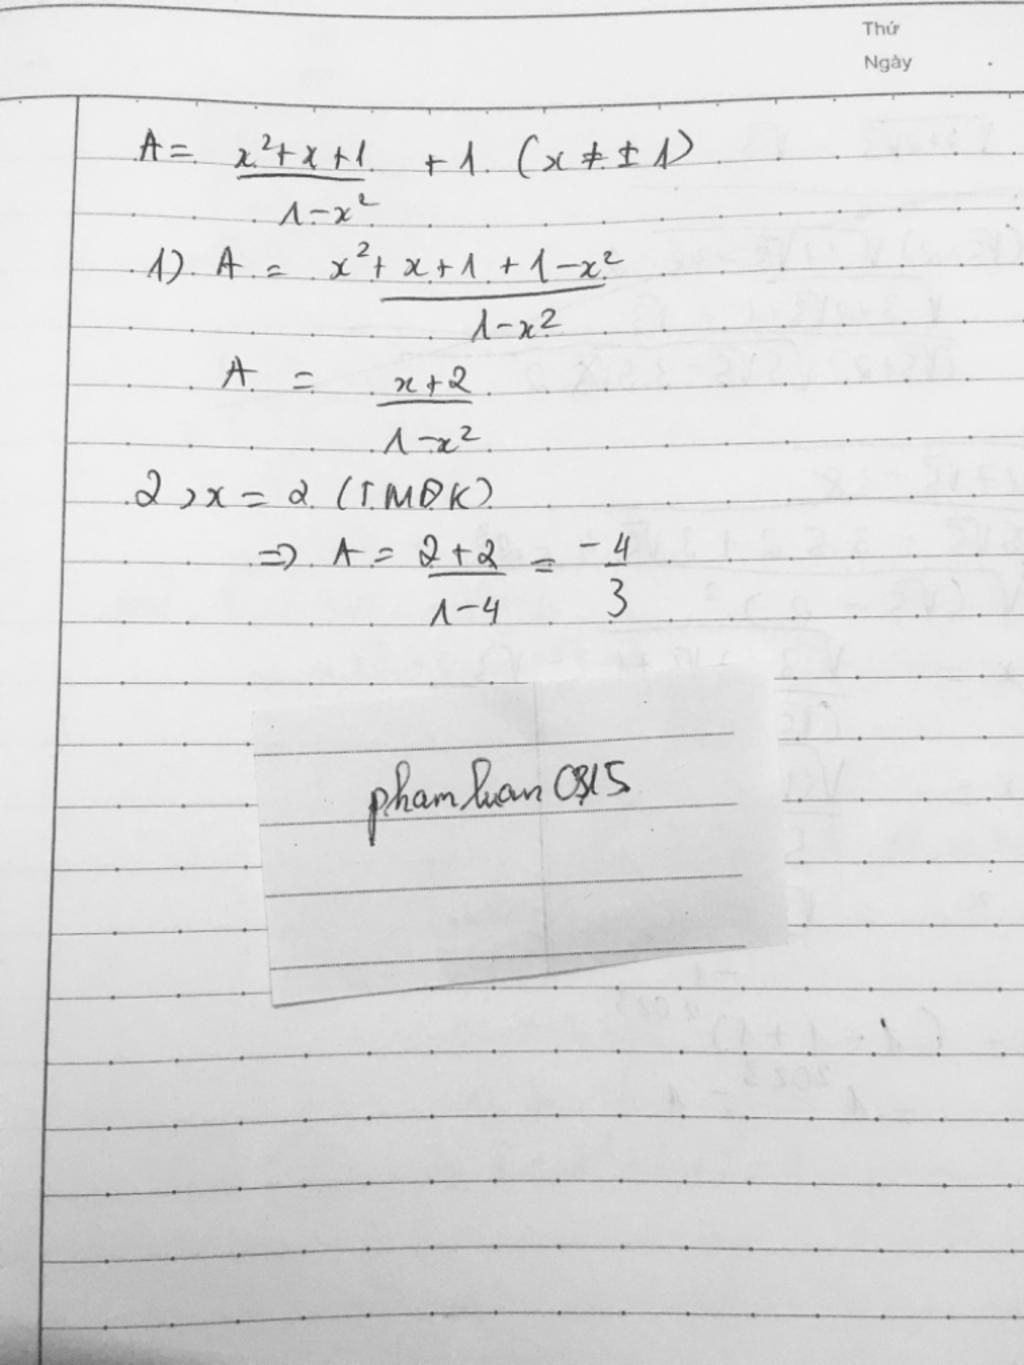 Thứ
Ngày
A = x²+x+1 / 1-x² + 1 (x ≠ ± 1)
1) A = x²+x+1+1-x² / 1-x²
A = x+2 / 1-x²
2) x = 2 (TMĐK)
=> A = 2+2 / 1-4 = -4 / 3
phamluan0315